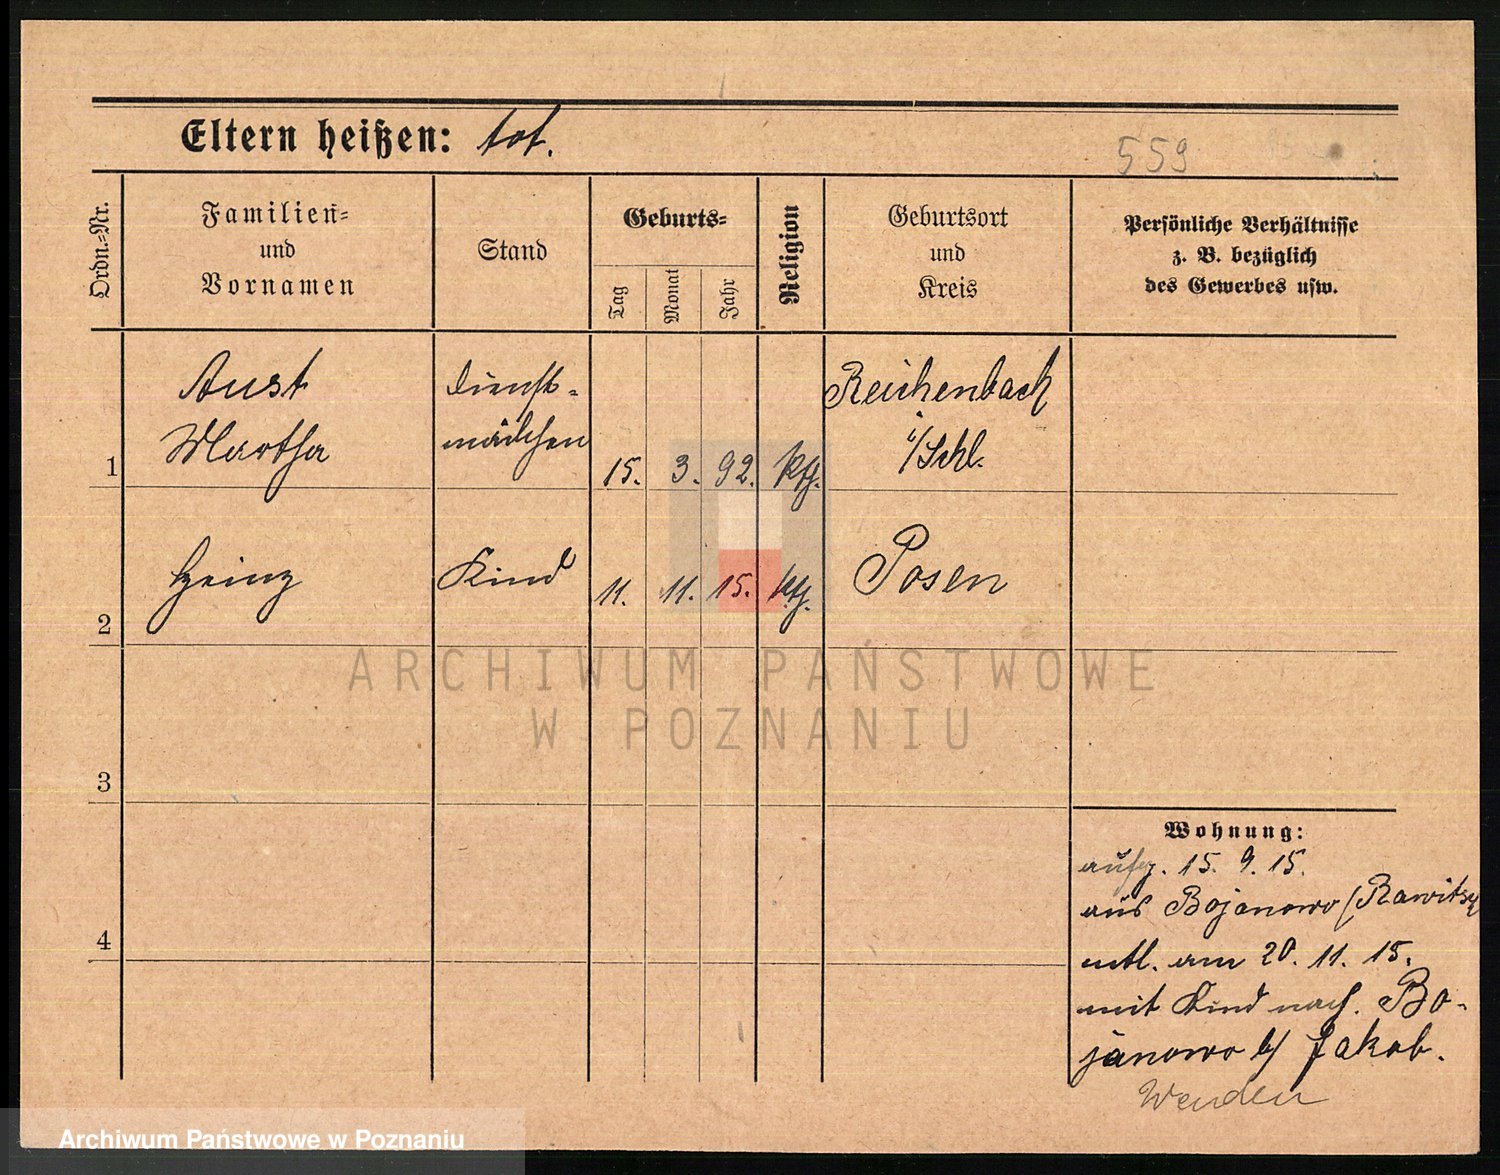 Eltern heißen: tot.
559
Ordn.=Nr.
Familien=
und
Vornamen
Stand
Geburts=
Tag
Monat
Jahr
Religion
Geburtsort
und
Kreis
Persönliche Verhältnisse
z. B. bezüglich
des Gewerbes usw.
1
Aust
Martha
Dienst-
mädchen
15. 3. 92. kth.
Reichenbach
i/Schl.
2
Heinz
Kind
11. 11. 15. kth.
Posen
3
4
Wohnung:
aufg. 15. 9. 15.
aus Bojanowo (Rawitsch
entl. am 20. 11. 15.
mit Kind nach Bo-
janowo b/ Jakob.
Wenden
ARCHIWUM PAŃSTWOWE
W POZNANIU
Archiwum Państwowe w Poznaniu